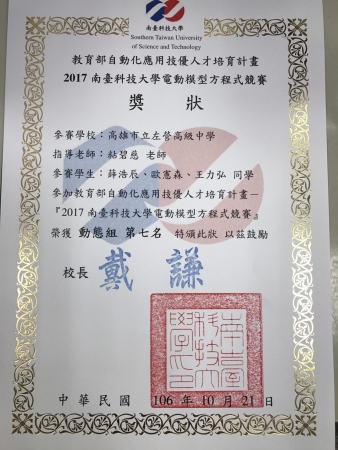 南臺科技大學
Southern Taiwan University
of Science and Technology
教育部自動化應用技優人才培育計畫
2017 南臺科技大學電動模型方程式競賽
獎 狀
參賽學校：高雄市立左營高級中學
指導老師：粘碧慈 老師
參賽學生：薛浩辰、歐憲森、王力弘 同學
參加教育部自動化應用技優人才培育計畫－
『2017 南臺科技大學電動模型方程式競賽』
榮獲 動態組 第七名 特頒此狀 以茲鼓勵
校長 戴 謙
南臺科技大學印
中華民國 106 年 10 月 21 日